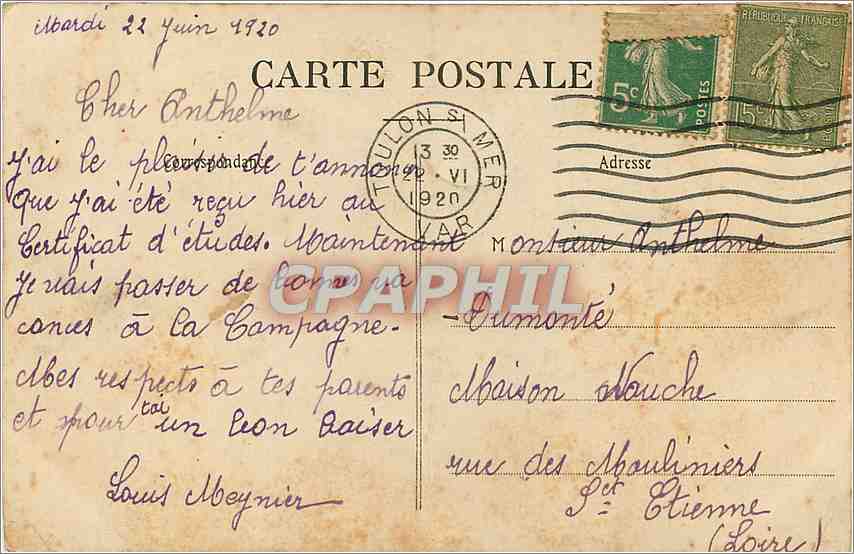 Mardi 22 Juin 1920
CARTE POSTALE
5c
POSTES
REPUBLIQUE FRANÇAISE
15
TOULON S MER
13 30
22 · VI
1920
VAR
Correspondance
Adresse
Cher Anthelme
J'ai le plaisir de t'annoncer
que j'ai été reçu hier au
Certificat d'études. Maintenant
Je vais passer de bonnes va
cances à la Campagne.
Mes respects à tes parents
et pour toi un bon baiser
Louis Meynier
Monsieur Anthelme
Dumonté
Maison Nouche
rue des Mouliniers
St Etienne
(Loire)
CPAPHIL